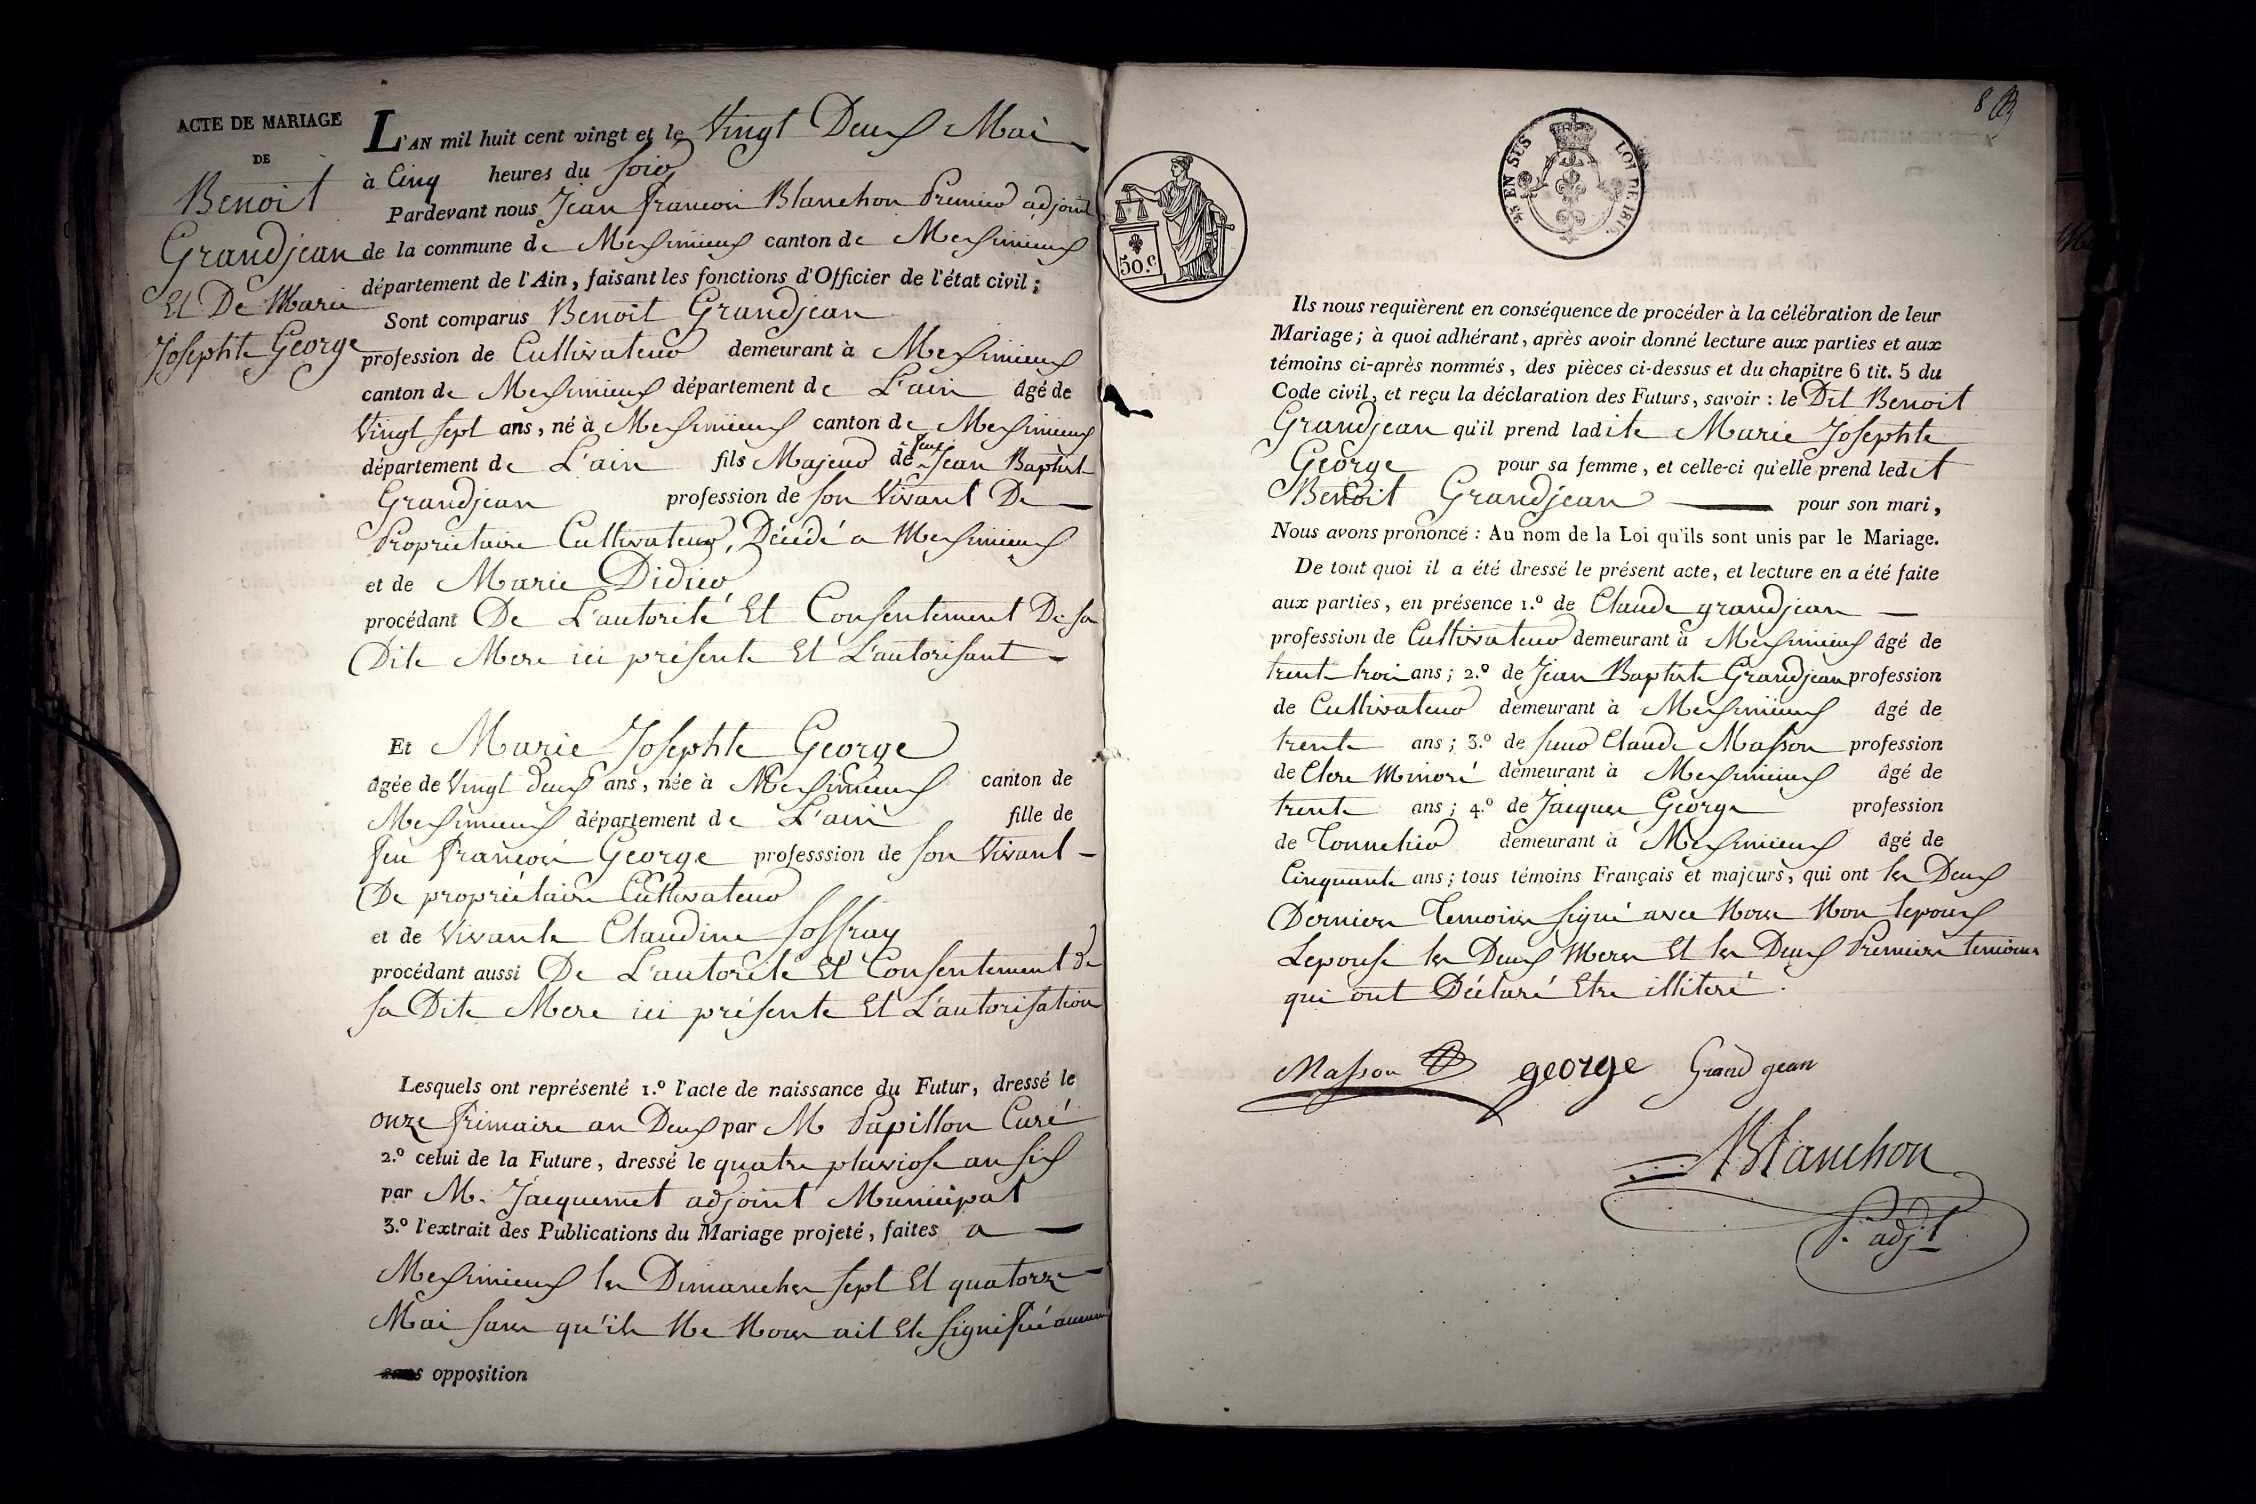 ACTE DE MARIAGE
DE
Benoit
Grandjean
Et De Marie
Josephte George
L'AN mil huit cent vingt et le Vingt Deux Mai
à Cinq heures du soir
Pardevant nous Jean françois Blanchon Premier adjoint
de la commune de Meximieux canton de Meximieux
département de l'Ain, faisant les fonctions d'Officier de l'état civil;
Sont comparus Benoit Grandjean
profession de Cultivateur demeurant à Meximieux
canton de Meximieux département de L'ain âgé de
Vingt sept ans, né à Meximieux canton de Meximieux
département de L'ain fils Majeur de feu Jean Baptiste
Grandjean profession de son Vivant De
Propriétaire Cultivateur, Décédé a Meximieux
et de Marie Didier
procédant De L'autorité Et Consentement De sa
Dite Mere ici présente Et L'autorisant
Et Marie Josephte George
âgée de Vingt deux ans, née à Meximieux canton de
Meximieux département de L'ain fille de
feu françois George professsion de son Vivant
De propriétaire Cultivateur
et de Vivante Claudine Joffray
procédant aussi De L'autorité Et Consentement de
sa Dite Mere ici présente Et L'autorisation
Lesquels ont représenté 1.º l'acte de naissance du Futur, dressé le
onze frimaire an Deux par M Papillon Curé
2.º celui de la Future, dressé le quatre pluviose an six
par M. Jacquemet adjoint Municipal
3.º l'extrait des Publications du Mariage projeté, faites a
Meximieux les Dimanches sept Et quatorze
Mai sans qu'il Ne Nous ait Ete signifié aucune
opposition
8
50.c
25 EN SUS
LOI DE 1816.
Ils nous requièrent en conséquence de procéder à la célébration de leur
Mariage; à quoi adhérant, après avoir donné lecture aux parties et aux
témoins ci-après nommés, des pièces ci-dessus et du chapitre 6 tit. 5 du
Code civil, et reçu la déclaration des Futurs, savoir: le Dit Benoit
Grandjean qu'il prend ladite Marie Josephte
George pour sa femme, et celle-ci qu'elle prend ledit
Benoit Grandjean pour son mari,
Nous avons prononcé: Au nom de la Loi qu'ils sont unis par le Mariage.
De tout quoi il a été dressé le présent acte, et lecture en a été faite
aux parties, en présence 1.º de Claude grandjean
profession de Cultivateur demeurant à Meximieux âgé de
trente trois ans; 2.º de Jean Baptiste Grandjean profession
de Cultivateur demeurant à Meximieux âgé de
trente ans; 3.º de sieur Claude Masson profession
de Clerc Minoré demeurant à Meximieux âgé de
trente ans; 4.º de Jacques George profession
de Tonnelier demeurant à Meximieux âgé de
Cinquante ans; tous témoins Français et majeurs, qui ont les Deux
Derniers Temoins signé avec Nous Non lepoux
Lepouse les Deux Meres Et les Deux Premiers temoins
qui ont Déclaré Etre illiteré.
Masson george Grand gean
Blanchon
P. adj.t